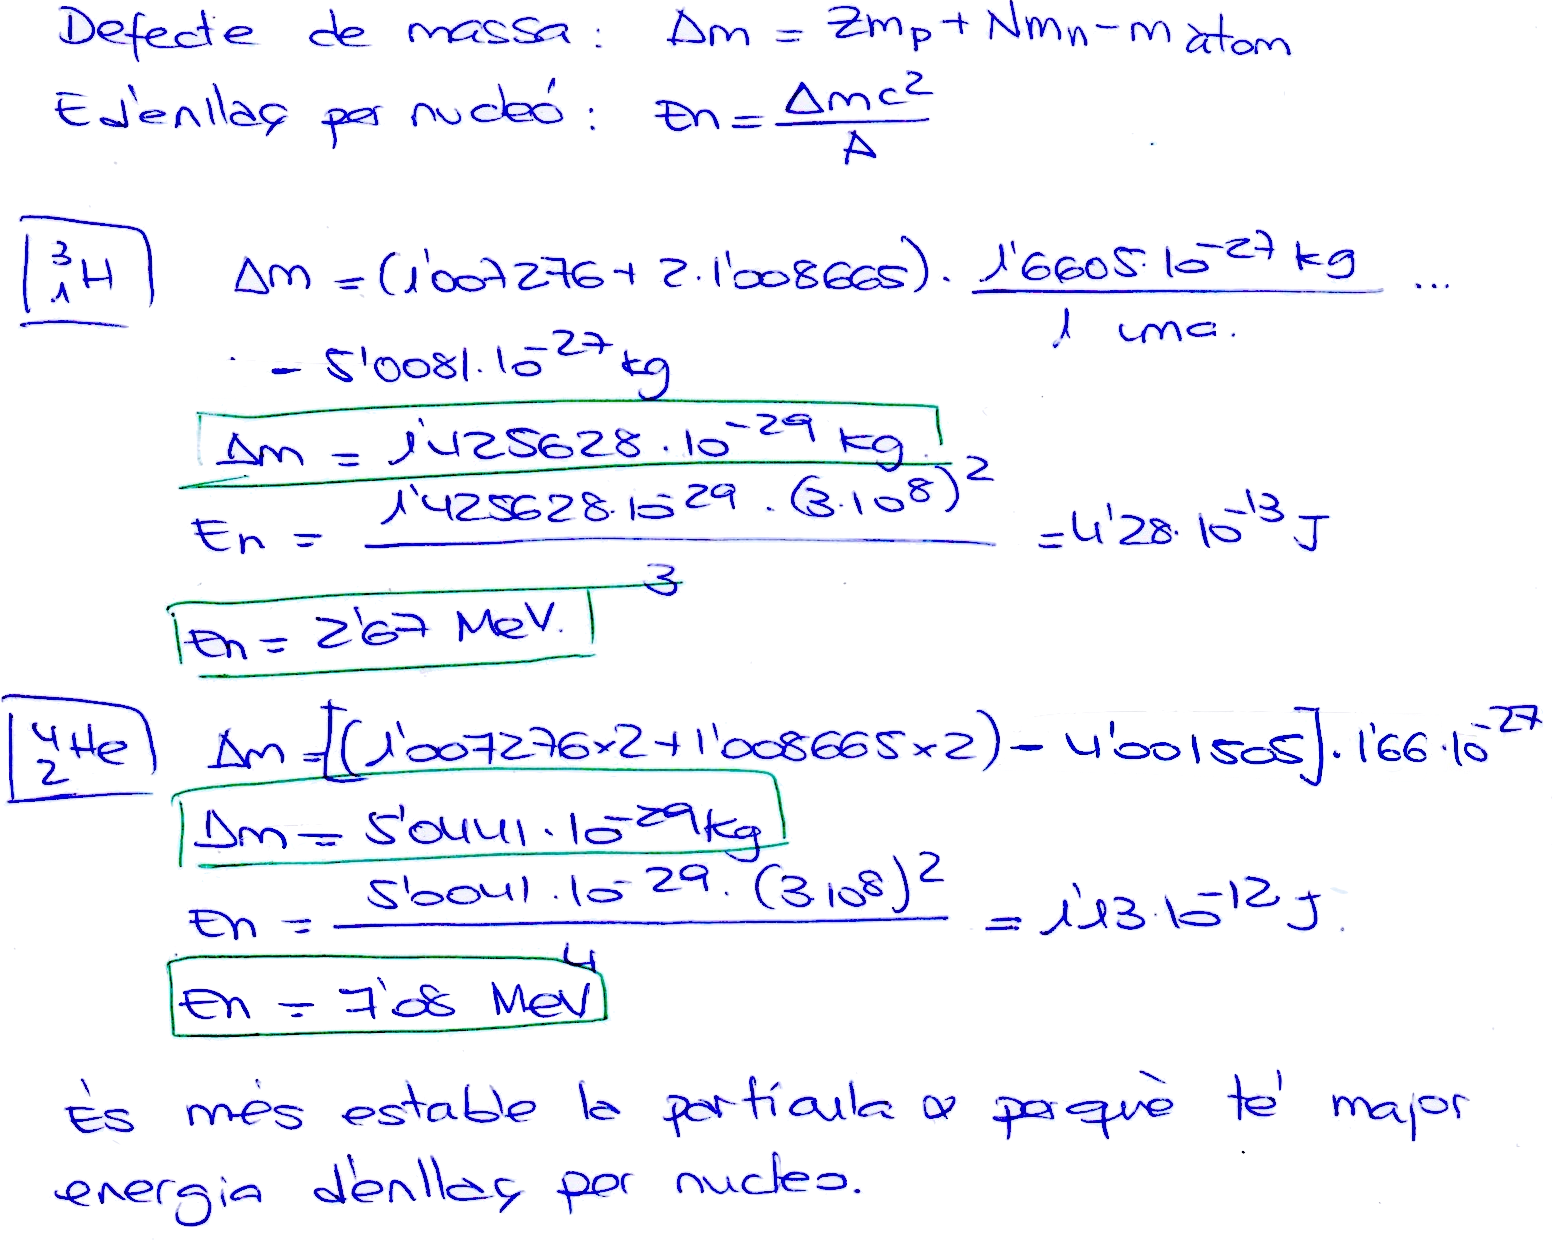 Defecte de massa: Δm = Zmp + Nmn - m àtom
E d'enllaç per nucleó: En = Δmc² / A
³₁H Δm = (1'007276 + 2·1'008665) · 1'6605·10⁻²⁷ kg / 1 uma. ...
- 5'0081·10⁻²⁷ kg
Δm = 1'425628·10⁻²⁹ kg.
En = 1'425628·10⁻²⁹ · (3·10⁸)² / 3 = 4'28·10⁻¹³ J
En = 2'67 MeV.
⁴₂He Δm = [(1'007276×2 + 1'008665×2) - 4'001505] · 1'66·10⁻²⁷
Δm = 5'0441·10⁻²⁹ kg
En = 5'0041·10⁻²⁹ · (3·10⁸)² / 4 = 1'13·10⁻¹² J.
En = 7'08 MeV
És més estable la partícula α perquè té major
energia d'enllaç per nucleo.